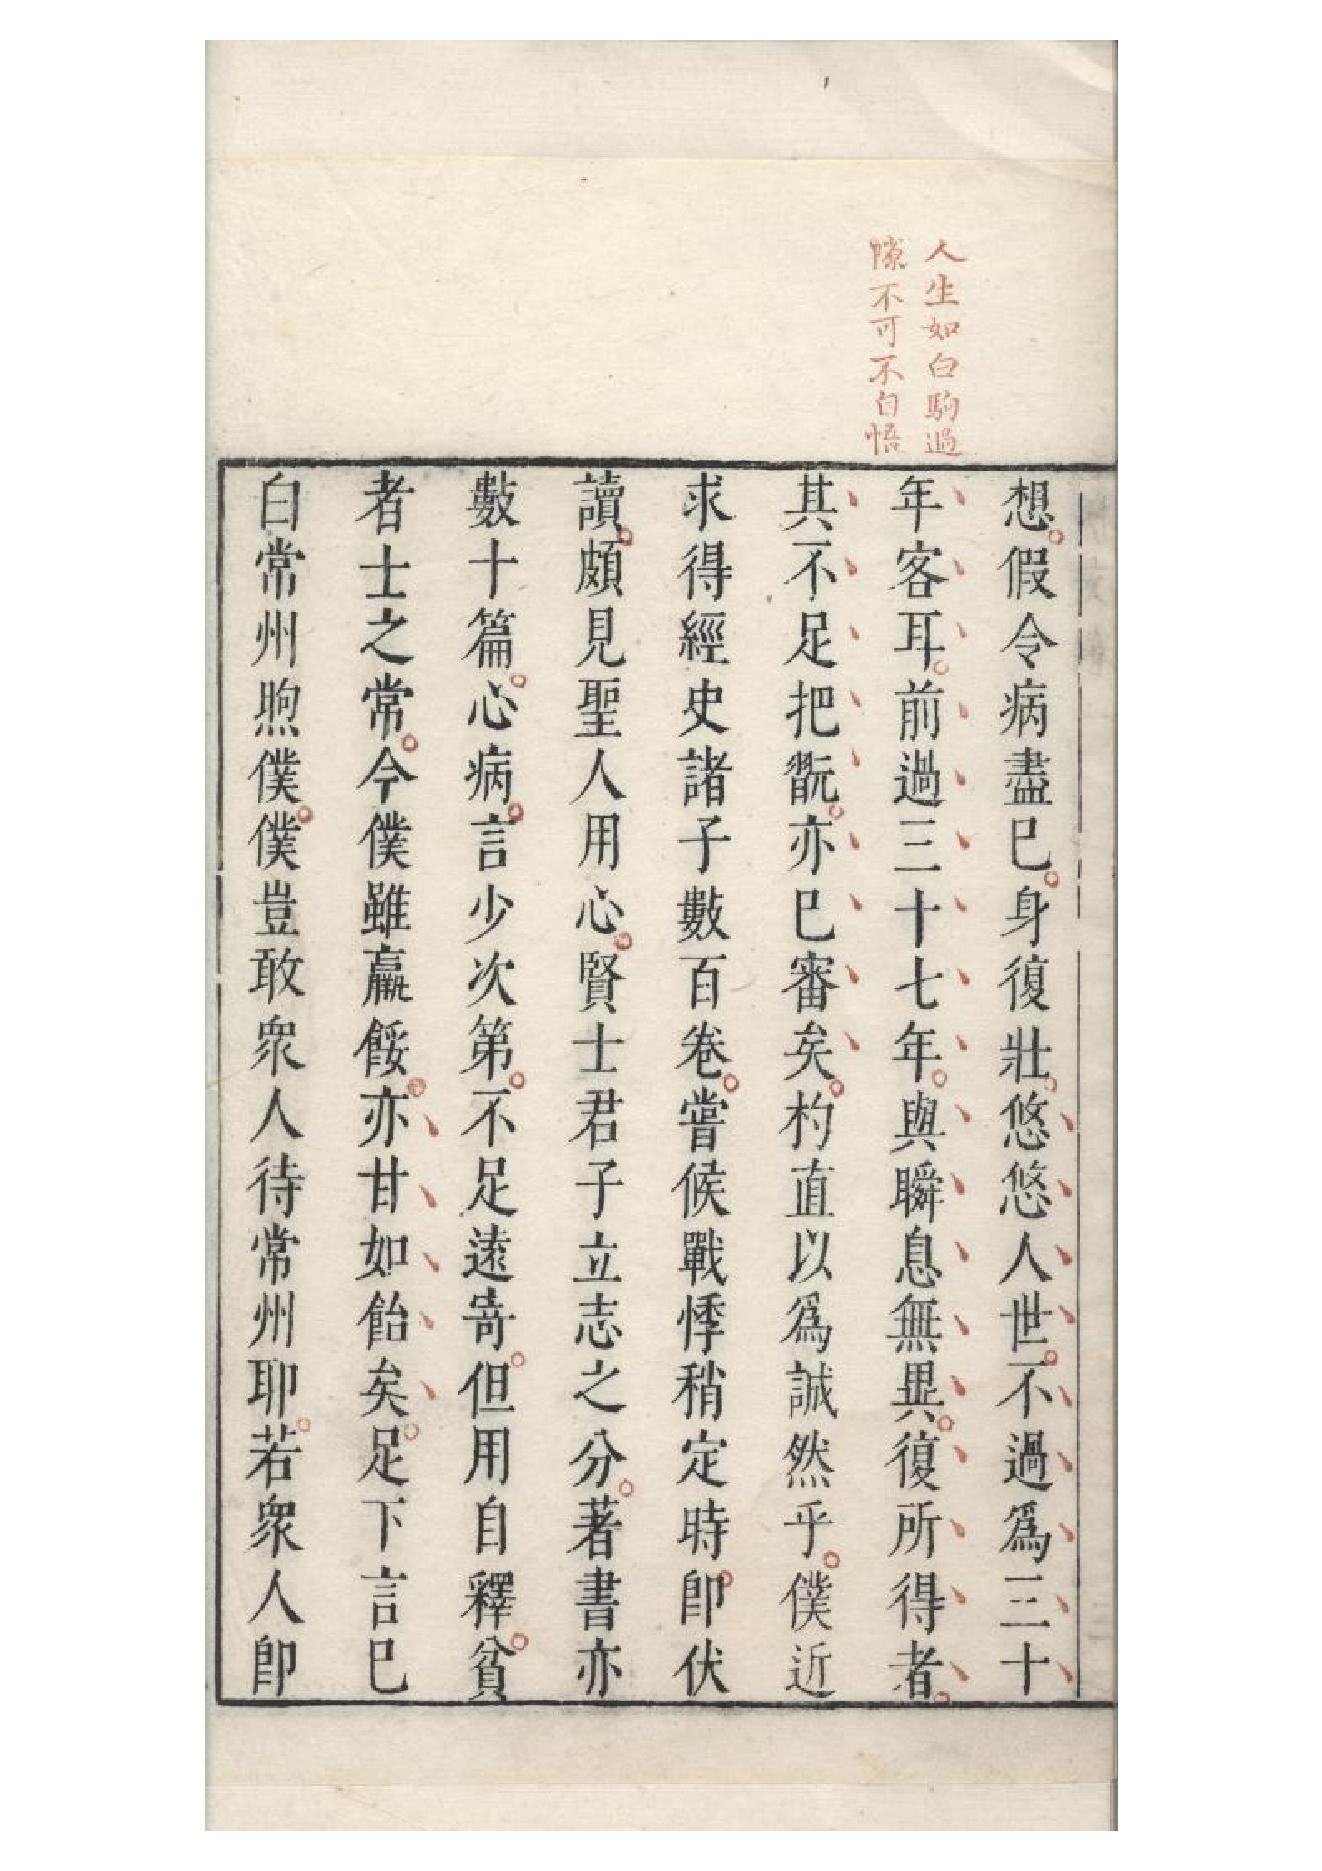 人生如白駒過
隙不可不自悟
想假令病盡巳身復壯悠悠人世不過為三十
年客耳前過三十七年與瞬息無異復所得者
其不足把翫亦巳審矣杓直以為誠然乎僕近
求得經史諸子數百卷嘗候戰悸稍定時卽伏
讀頗見聖人用心賢士君子立志之分著書亦
數十篇心病言少次第不足遠寄但用自釋貧
者士之常今僕雖羸餒亦甘如飴矣足下言巳
白常州煦僕僕豈敢衆人待常州耶若衆人卽